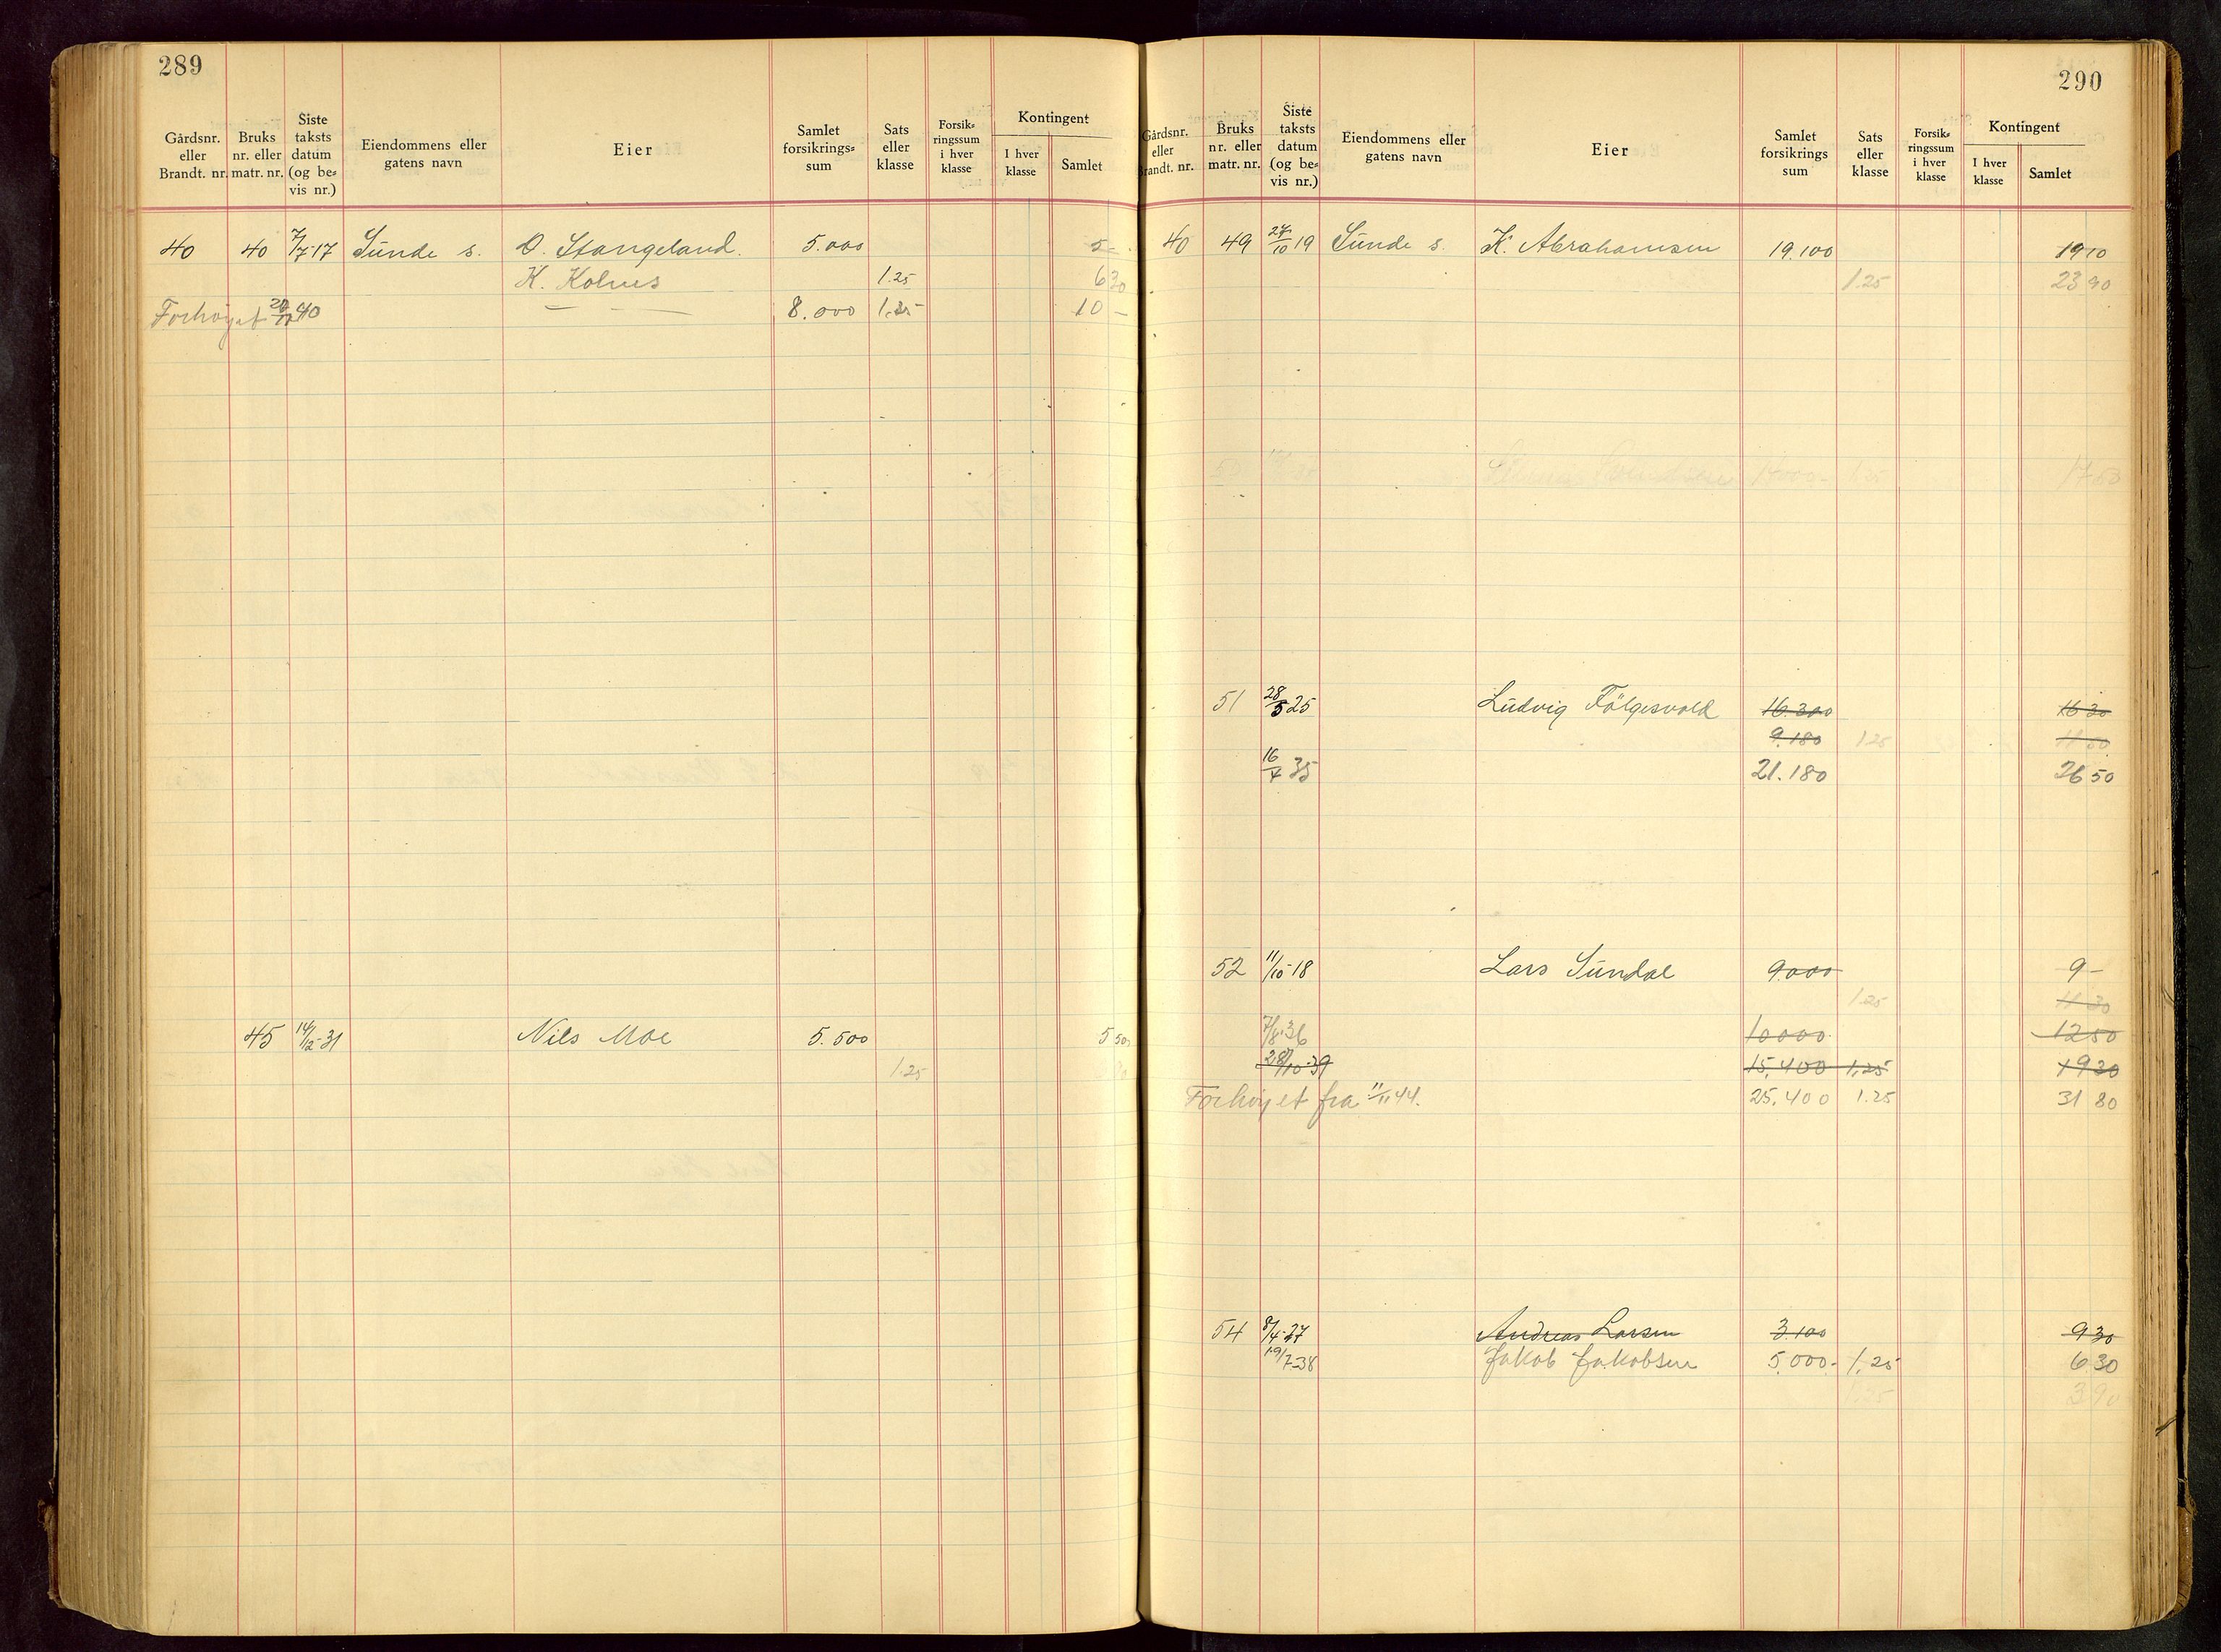 289
Gårdsnr. eller Brandt. nr.
Bruks nr. eller matr. nr.
Siste taksts datum (og be= vis nr.)
Eiendommens eller gatens navn
Eier
Samlet forsikrings= sum
Sats eller klasse
Forsik= ringssum i hver klasse
Kontingent
I hver klasse
Samlet
40 40 7/7-17 Sunde s. O. Stangeland. 5.000 5-
K. Kolnes 1.25 6 30
Forhøyet 40 — — 8.000 1.25 10 -
45 14/2-31 Nils Moe 5.500 5 50
1.25
290
Gårdsnr. eller Brandt. nr.
Bruks nr. eller matr. nr.
Siste taksts datum (og be= vis nr.)
Eiendommens eller gatens navn
Eier
Samlet forsikrings sum
Sats eller klasse
Forsik= ringssum i hver klasse
Kontingent
I hver klasse
Samlet
40 49 27/10 19 Sunde s. K. Abrahamsen 19.100 19 10
1.25 23 90
50 1.25 17 50
51 28/5 25 Ludvig Fölgesvold 16.300 16 30
9.180 1.25 11 50
16/7 35 21.180 26 50
52 11/10-18 Lars Sundal 9000 9-
1.25 11 30
7/8-36 10000 12 50
28/10-39 15.400 1.25 19 30
Forhøyet fra 11/11 44. 25.400 1.25 31 80
54 8/4-27 Andreas Larsen 3.100 9 30
19/7-38 Jakob Jakobsen 5.000- 1.25 6 30
1.25 3 90